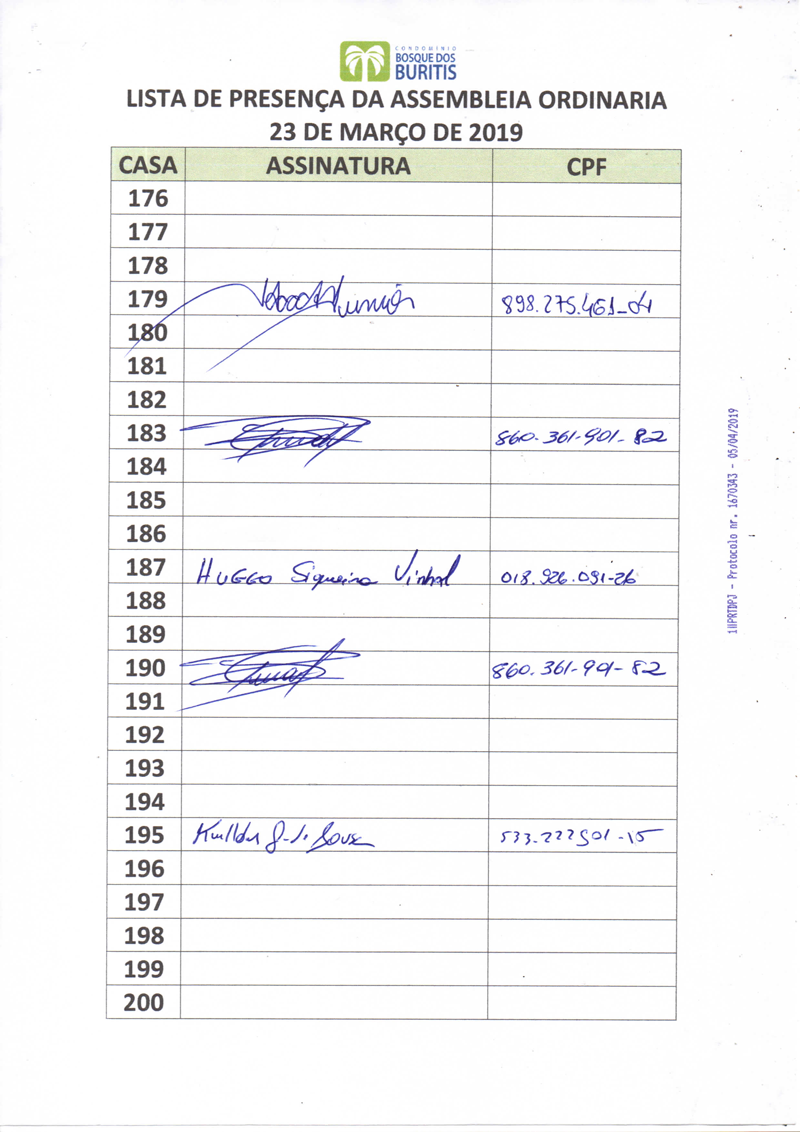 CONDOMÍNIO
BOSQUE DOS
BURITIS
LISTA DE PRESENÇA DA ASSEMBLEIA ORDINARIA
23 DE MARÇO DE 2019
CASA ASSINATURA CPF
176
177
178
179 898.275.461-04
180
181
182
183 860.361-901-82
184
185
186
187 HUGGO Siqueira Vinhal 018.926.091-26
188
189
190 860.361-901-82
191
192
193
194
195 de Souza 533.222901-15
196
197
198
199
200
Protocolo nr. 1670343 - 05/04/2019